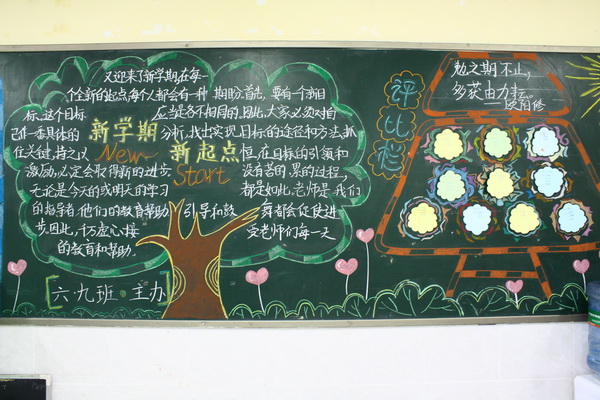 又迎来了新学期,在每一
个全新的起点,每个人都会有一种 期盼。首先,要有个目
标、这个目标 应当是各不相同的,因此,大家必须对自
己作一番具体的 分析,找出实现目标的途径和方法,抓
新学期
New
新起点
Start
住关键,持之以 恒,在目标的引领和
激励,必定会取得新的进步 没有 的过程,
无论是今天的或明天的学习 都是如此。老师是我们
的指导者,他们的教育帮助 引导和鼓 舞都会促使进
步。因此,千万虚心接 受老师们每一天
的教育和帮助。
六·九班·主办
评比栏
勉之期不止,
多获由力耘。
——欧阳修